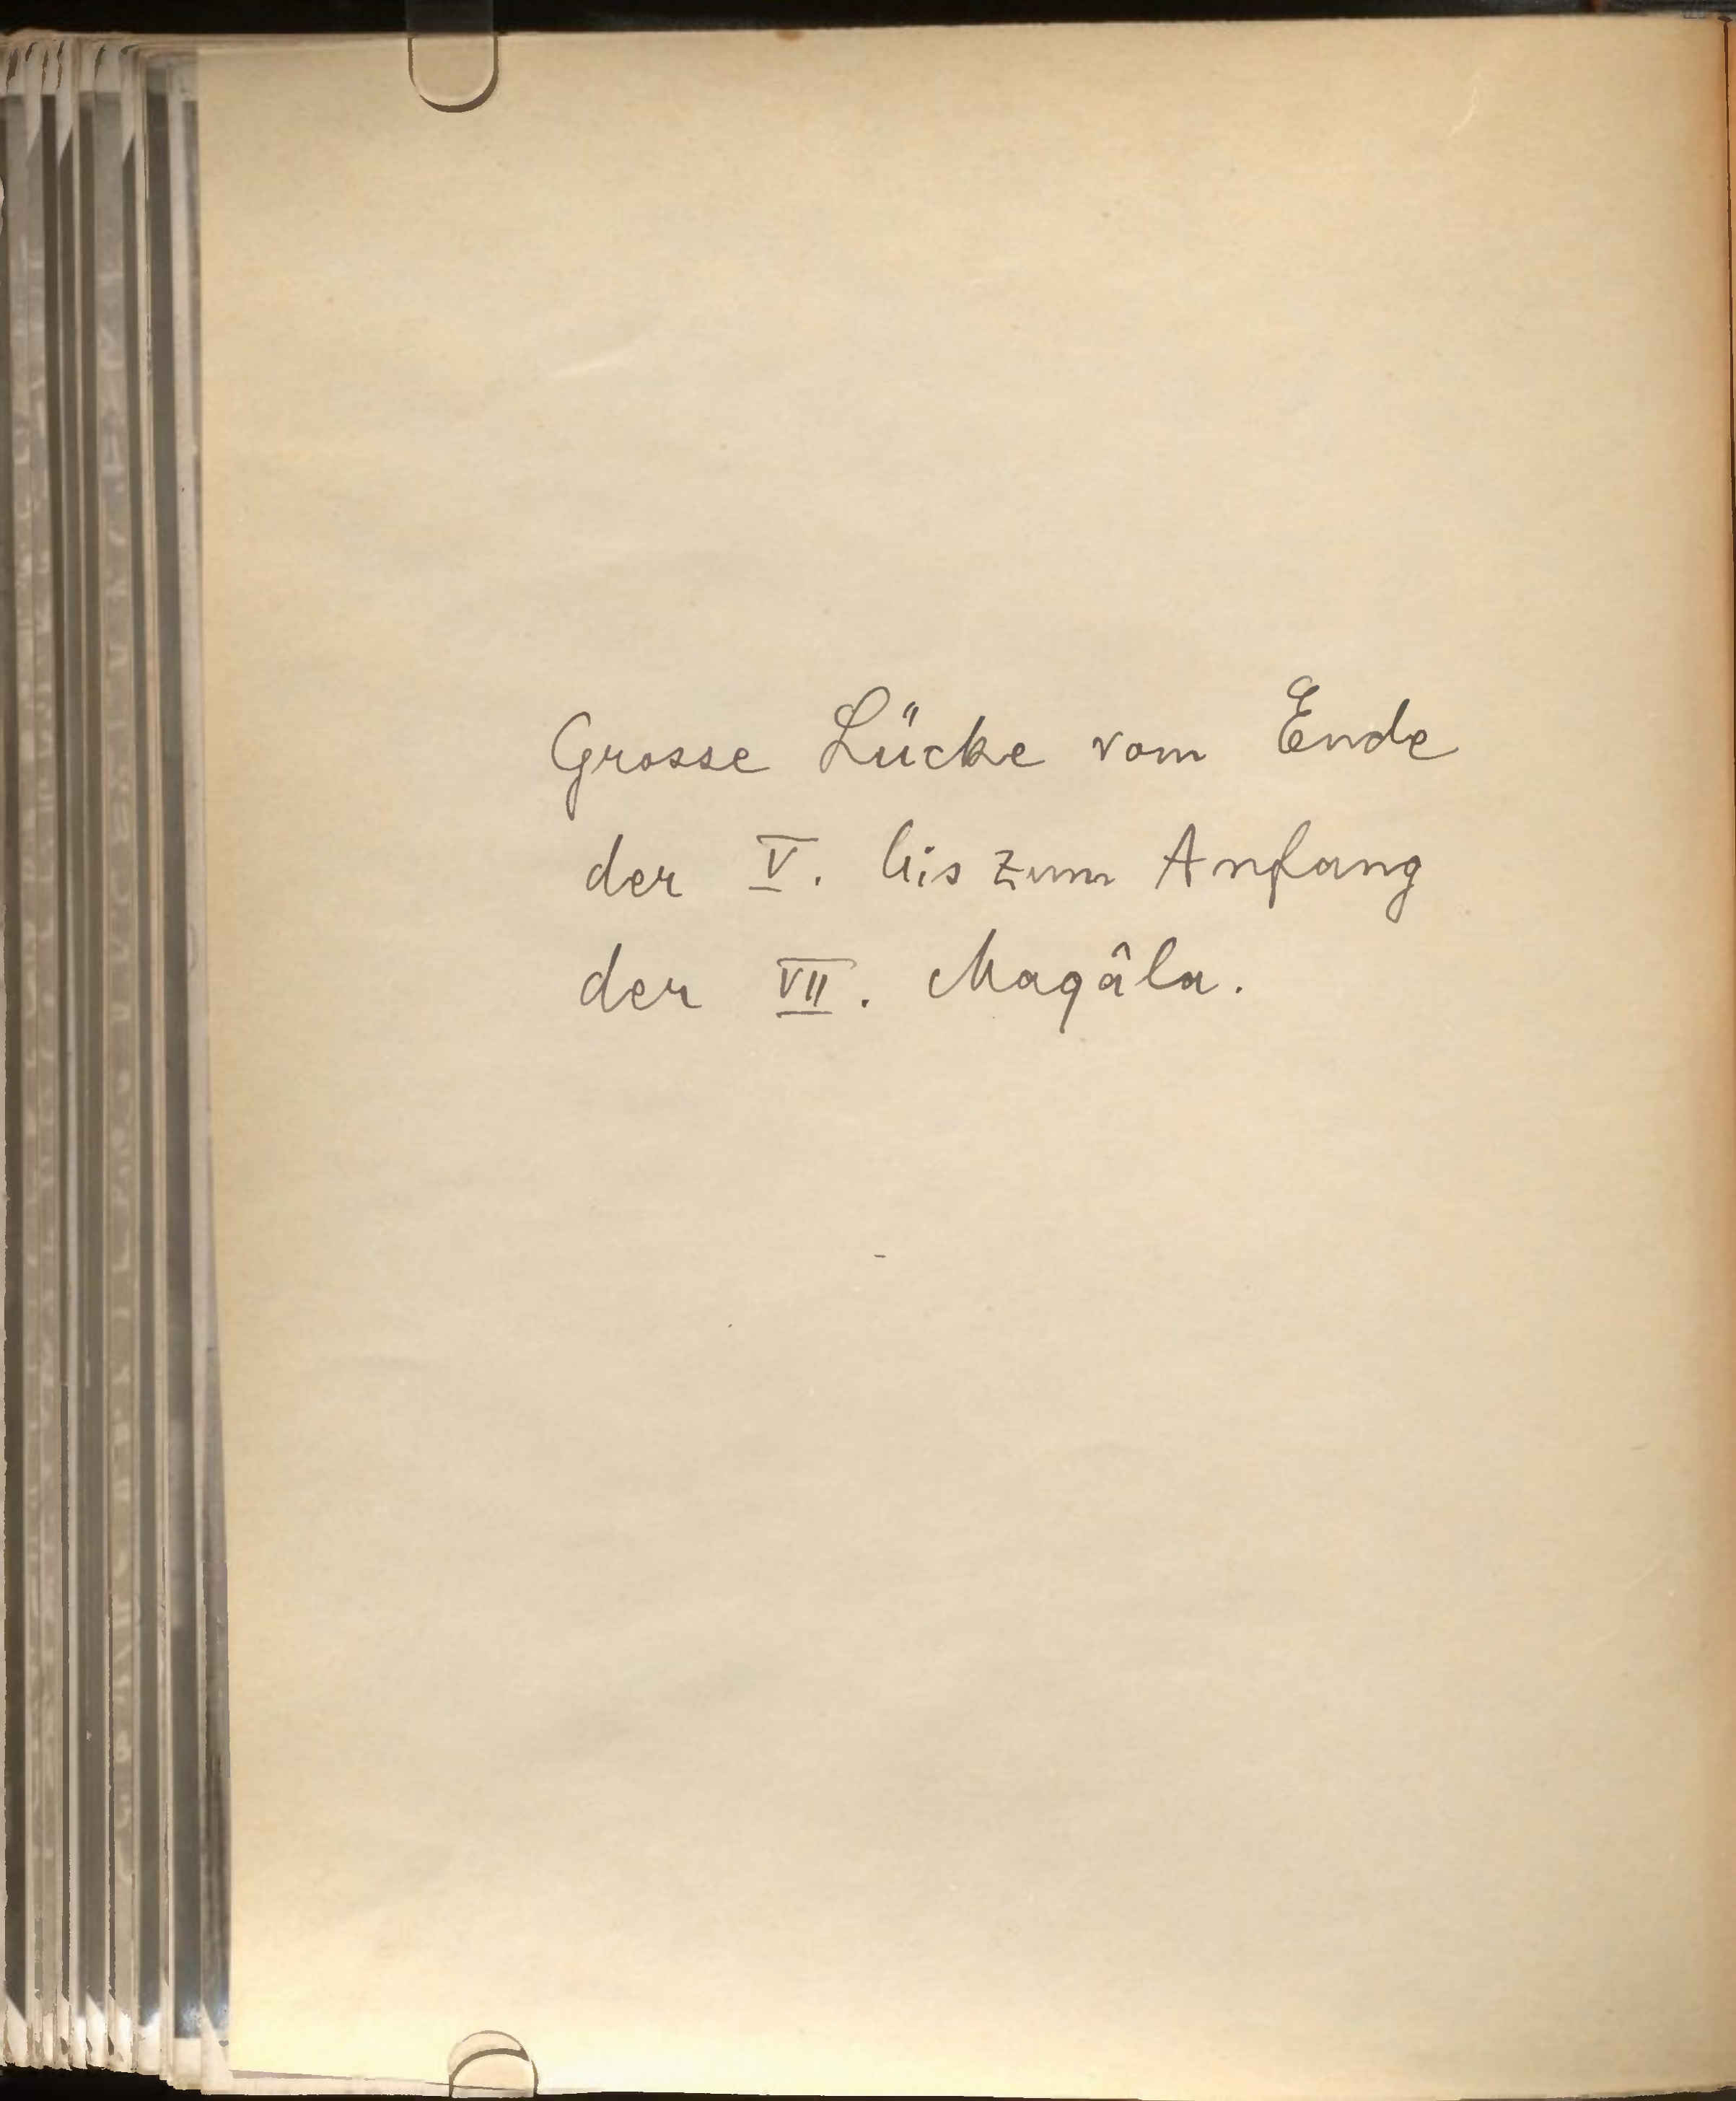 Grosse Lücke vom Ende
der V. bis zum Anfang
der VII. Maqâla.